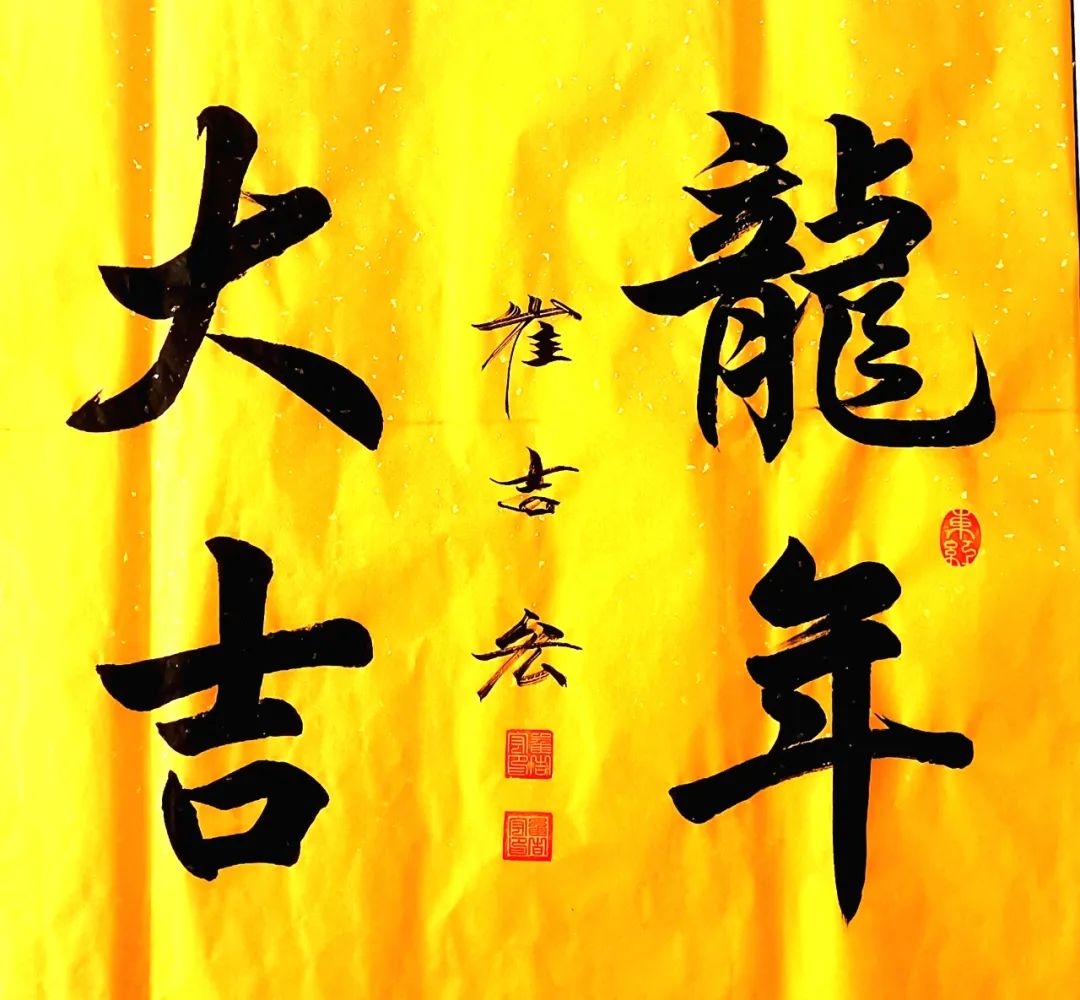 龍年
大吉
崔吉宏